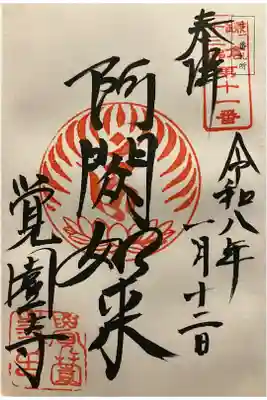 奉拝
第十一番
令和八年
一月十二日
阿閦如来
覚園寺